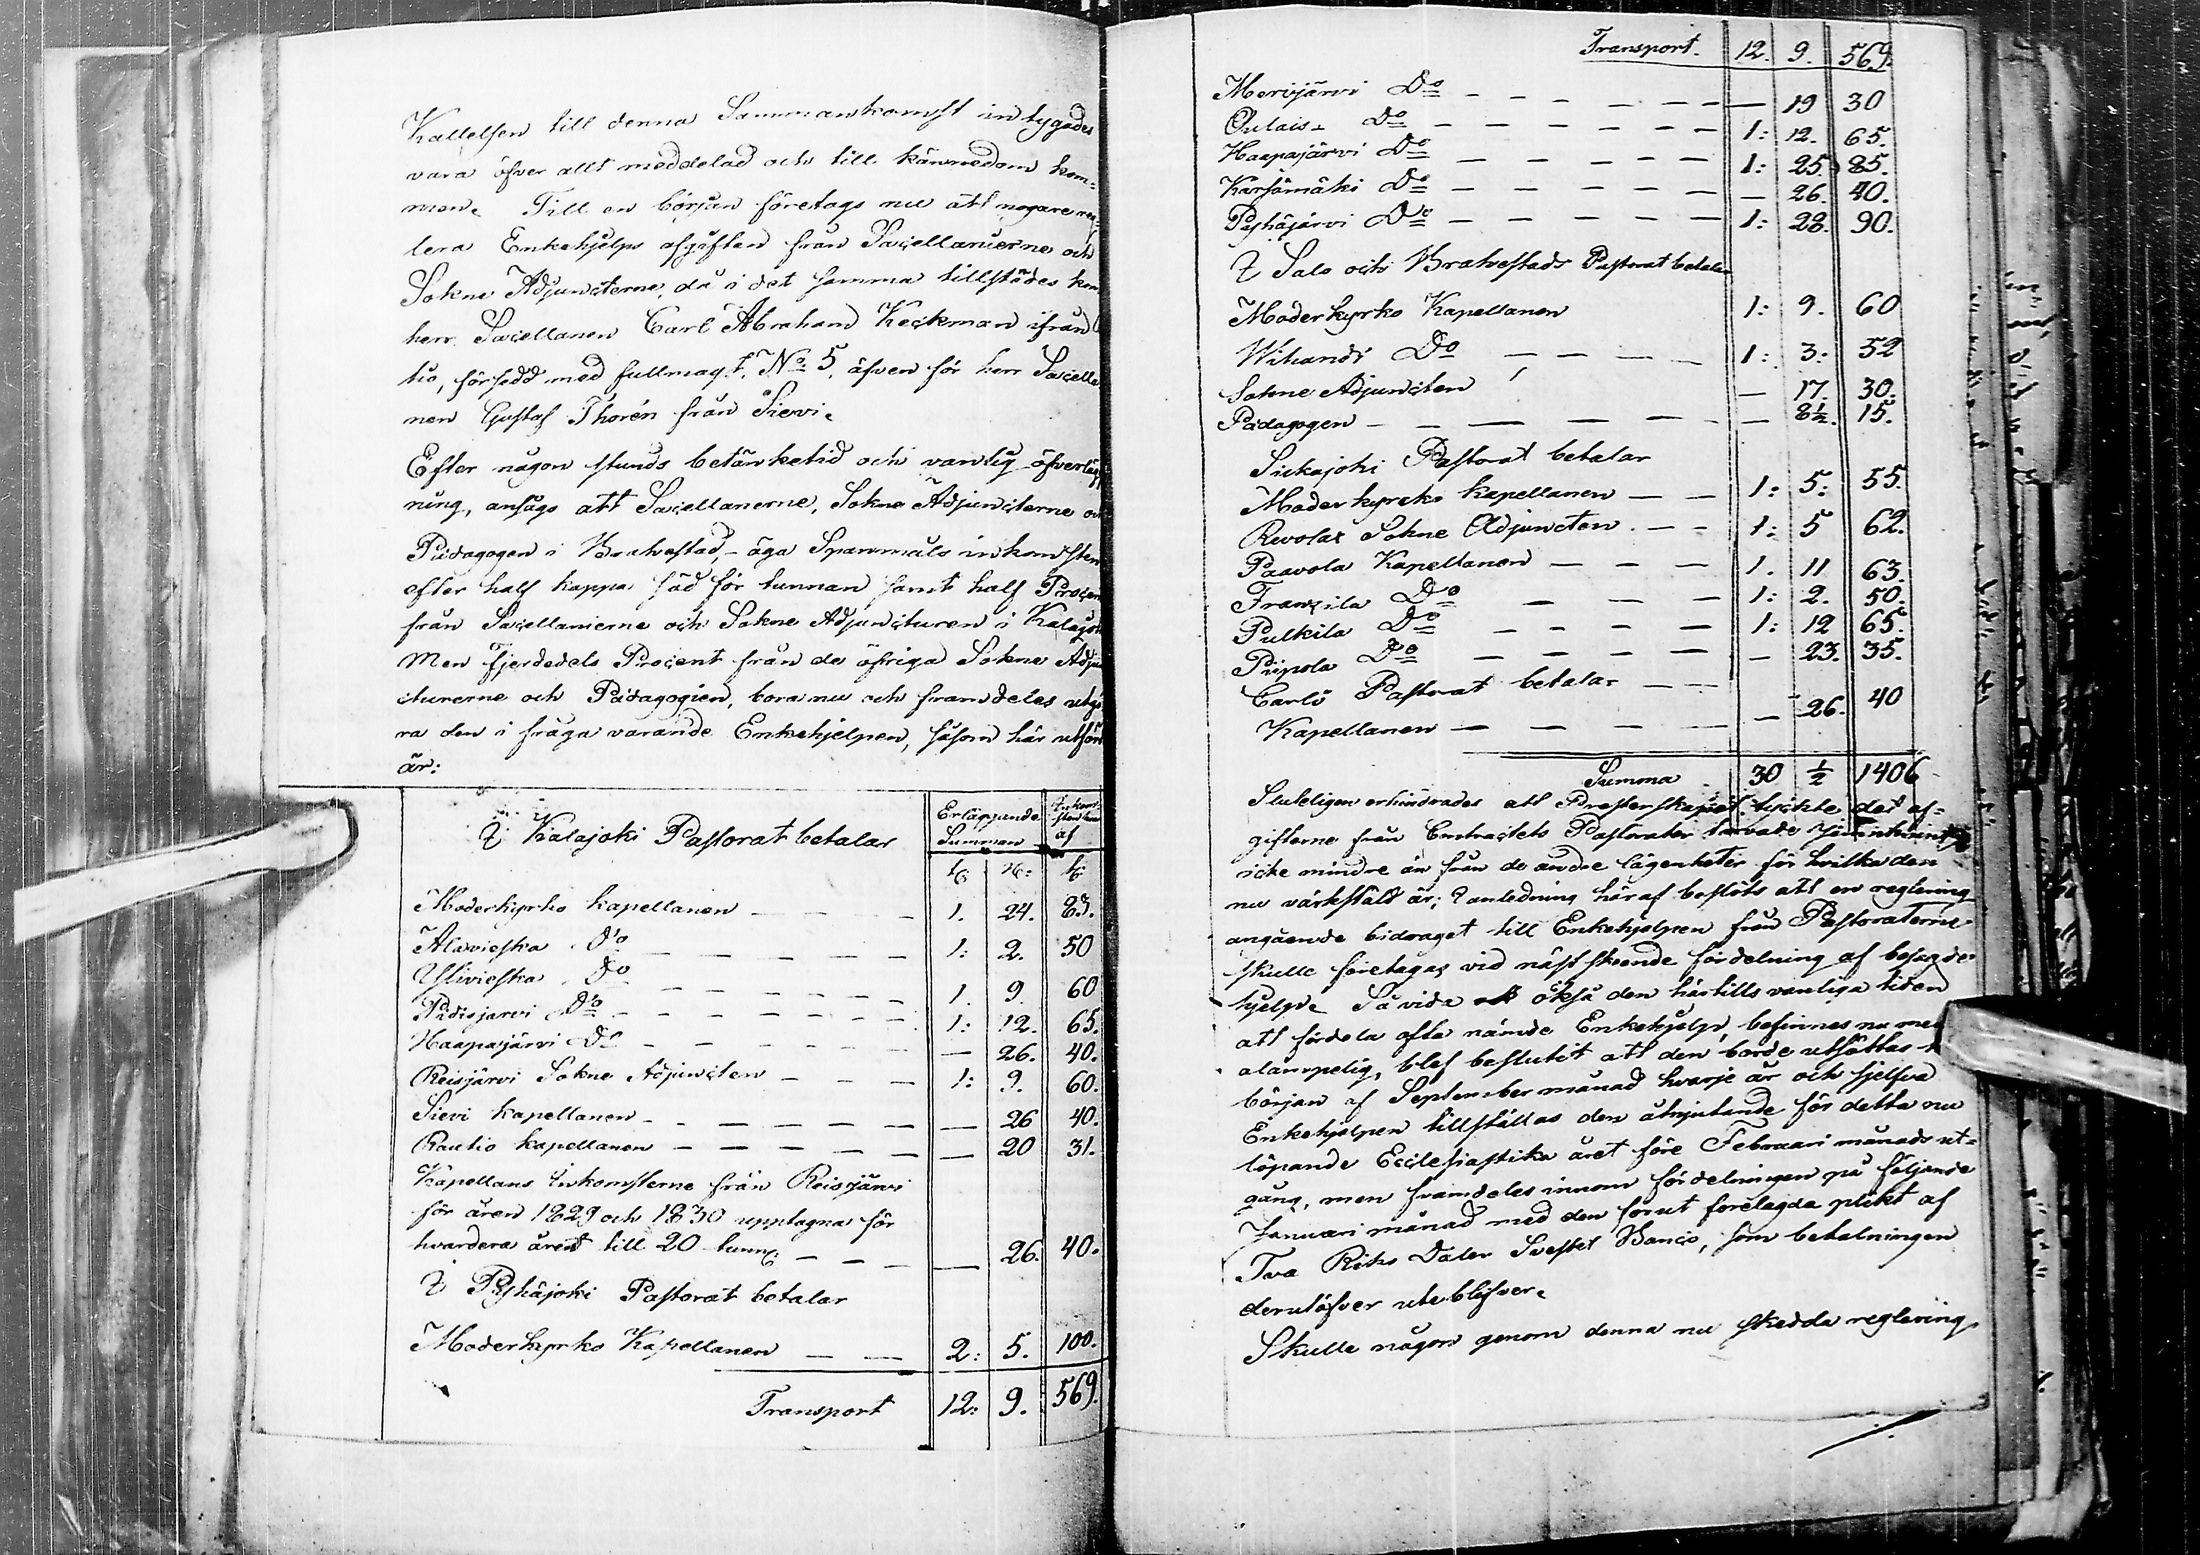 Kallelsen till denna Sammankomst intygades
vara öfver allt meddelad och till kännedom kom=
men. Till en början företogs nu att nogare reg
lera Enkehjelps afgiften från Sacellanierne och
Sokne Adjuncterne, då i det samma tillstädes kom
herr Sacellanen Carl Abraham Keckman ifrån
tio, försedd med fullmagt, No 5, äfven för herr Sacella
nen Gustaf Thorén från Sievi.
Efter någon stunds betänketid och vanlig öfverlägg
ning, ansågs att Sacellanerne, Sokne Adjuncterne och
Pädagogen i Brahestad, äga Spanmåls inkomsten
efter half kappa säd för tunnan samt half Procent
från Sacellanierne och Sokne Adjuncturen i Kalajoki
Men fjerdedels Procent från de öfriga Sokne Adju
cturerne och Pädagogien, bora nu och framdeles utgö
ra den i fråga varande Enkehjelpen, såsom här utfördt
är:
I Kalajoki Pastorat betalar Erläggande Summan Inkomsten af
Moderkyrko kapellanen — — 1. 24. 83.
Alavieska Do — — — — 1: 2. 50
Ylivieska Do — — — — 1. 9. 60
Pidisjarvi Do — — — — 1: 12. 65.
Haapajärvi Do — — — — — 26. 40.
Reisjärvi Sokne Adjuncten — — — 1: 9. 60.
Sievi kapellanen — — — — — 26 40.
Rautio kapellanen — — — — — 20 31.
Kapellans Inkomsterne från Reisjärvi
för åren 1829 och 1830 upptagna för
hvardera året till 20 tunn: — — — 26. 40.
I Pyhäjoki Pastorat betalar
Moderkyrko Kapellanen — — 2: 5. 100.
Transport 12: 9. 569.
Transport. 12. 9. 569.
Merijärvi Do — — — — — — 19 30
Oulais Do — — — — — 1: 12. 65.
Haapajärvi Do — — — — — 1: 25. 85.
Karsämäki Do — — — — — — 26. 40.
Pyhäjärvi Do — — — — — 1: 28. 90.
I Salo och Brahestads Pastorat betalar
Moderkyrko Kapellanen 1: 9. 60
Wihandi Do — — — — 1: 3: 52
Sokne Adjuncten — 17. 30.
Pädagogen — — — — — — 8½. 15.
Siikajoki Pastorat betalar
Moderkyrko kapellanen — — 1: 5: 55.
Revolax Sokne Adjuncten. — — 1: 5 62.
Paavola Kapellanen — — — 1. 11 63.
Franzila Do — — — — 1: 2. 50.
Pulkila Do — — — — 1: 12 65.
Piipola Do — — — — — 23. 35.
Carlö Pastorat betalar — —
Kapellanen — — — — — 26. 40
Summa 30 ½ 1406
Sluteligen erhindrades att Presterskapet tyckte det af=
gifterne från Contractets Pastorater tarvade
icke mindre än från de andre lägenheter för hvilka den
nu värkstäld är; I anledning häraf beslöts att en reglering
angående bidraget till Enkehjelpen från Pastoraterne
skulle företagas vid näst skeende fördelning af besagde
hjelp. Så vida också den härtills vanliga tiden
att fördela ofta nämde Enkehjelp, befinnes nu mer
olämpelig, blef beslutit att den borde utsättas
början af September månad hvarje år och sjelfva
Enkehjelpen tillställas den åtnjutande för detta nu
löpande Ecclesiastika året före Februari månads ut=
gång, men framdeles innom fördelningen på följande
Januari månad med den förut förelagda plikt af
Tva Riks Daler Svenskt Banco, som betalningen
derutöfver uteblifver.
Skulle någon genom denna nu skedda reglering